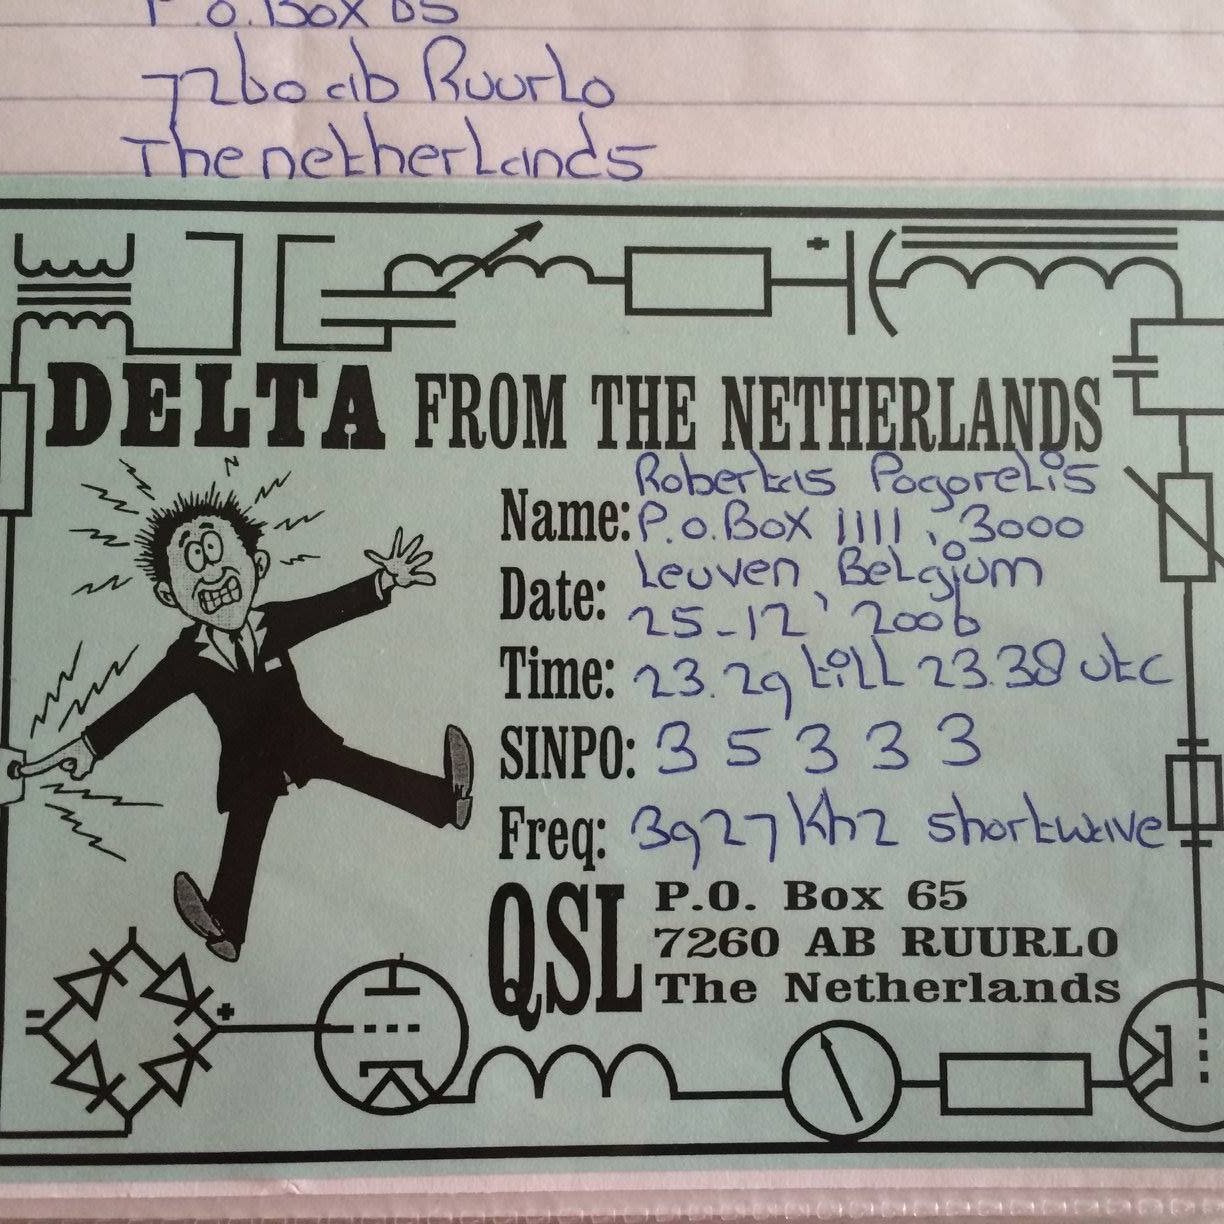 P.O. Box 65
7260 ab Ruurlo
The netherlands
DELTA FROM THE NETHERLANDS
Name: Robertas Pogorelis
P.O. Box 1111, 3000
Leuven, Belgium
Date: 25-12, 2006
Time: 23.29 till 23.38 utc
SINPO: 3 5 3 3 3
Freq: 3927 Khz shortwave
QSL P.O. Box 65
7260 AB RUURLO
The Netherlands
+
- +